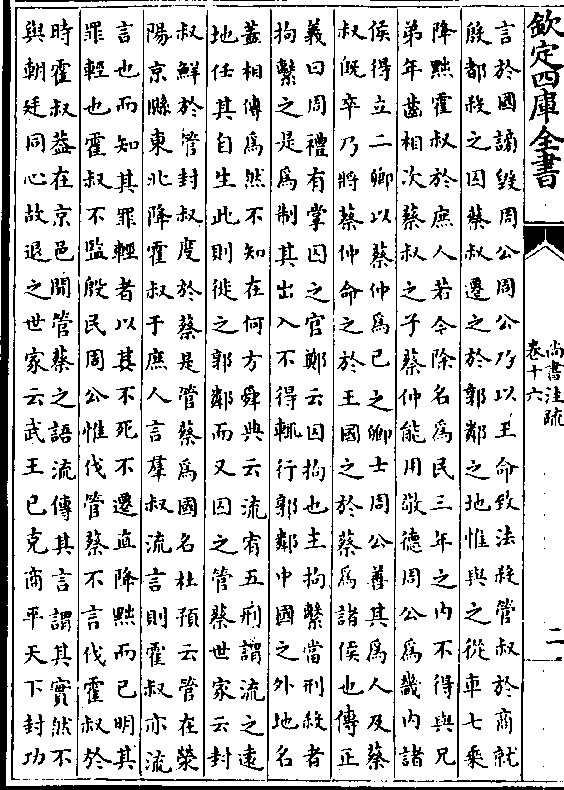 欽定四庫全書
尚書注疏
卷十六
二
言於國謗毀周公周公乃以王命致法殺管叔於商就
殷都殺之囚蔡叔遷之於郭鄰之地惟與之從車七乘
降黜霍叔於庶人若今除名為民三年之内不得與兄
弟年齒相次蔡叔之子蔡仲能用敬德周公為畿内諸
侯得立二卿以蔡仲為已之卿士周公善其為人及蔡
叔既卒乃將蔡仲命之於王國之於蔡為諸侯也傳正
義曰周禮有掌囚之官鄭云囚拘也主拘繫當刑殺者
拘繫之是為制其出入不得輒行郭鄰中國之外地名
葢相傳為然不知在何方舜典云流宥五刑謂流之遠
地任其自生此則徙之郭鄰而又囚之管蔡世家云封
叔鮮於管封叔度於蔡是管蔡為國名杜預云管在滎
陽京縣東北降霍叔于庶人言羣叔流言則霍叔亦流
言也而知其罪輕者以其不死不遷直降黜而已明其
罪輕也霍叔不監殷民周公惟伐管蔡不言伐霍叔於
時霍叔葢在京邑聞管蔡之語流傳其言謂其實然不
與朝廷同心故退之世家云武王已克商平天下封功